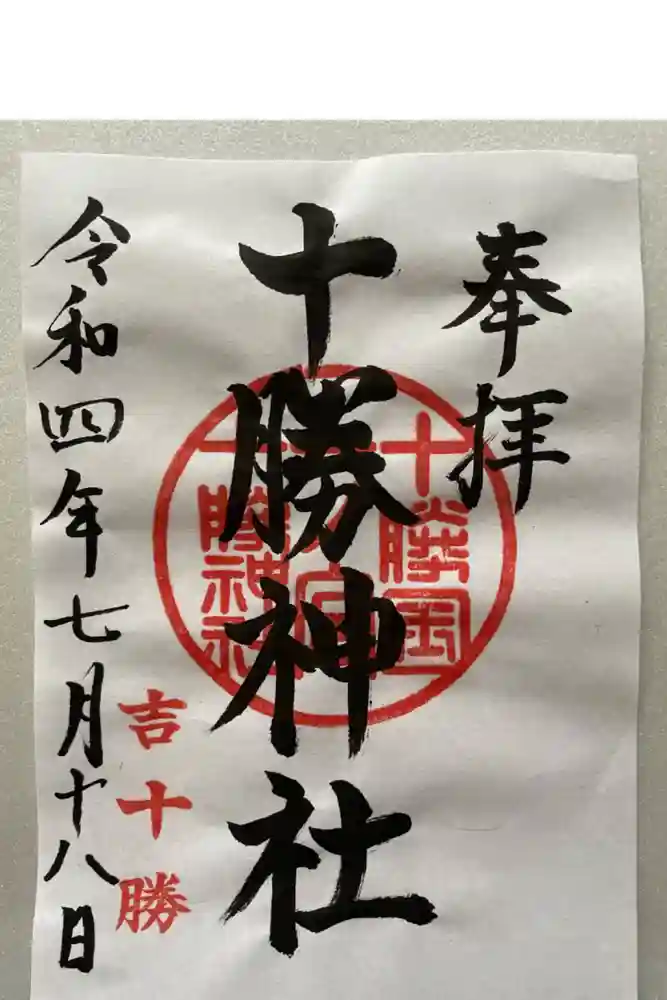 奉拝
十勝神社
十勝國
十勝神社
吉十勝
令和四年七月十八日